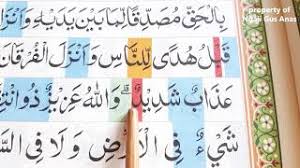 property of
Ngaji Gus Anas
بِالْحَقِّ مُصَدِّقًا لِّمَا بَيْنَ يَدَيْهِ
قَبْلُ هُدًى لِّلنَّاسِ وَاَنْزَلَ الْفُرْقَانَ
عَذَابٌ شَدِيْدٌ ۗ وَاللّٰهُ عَزِيْزٌ ذُو
شَيْءٌ فِى الْاَرْضِ وَلَا فِى